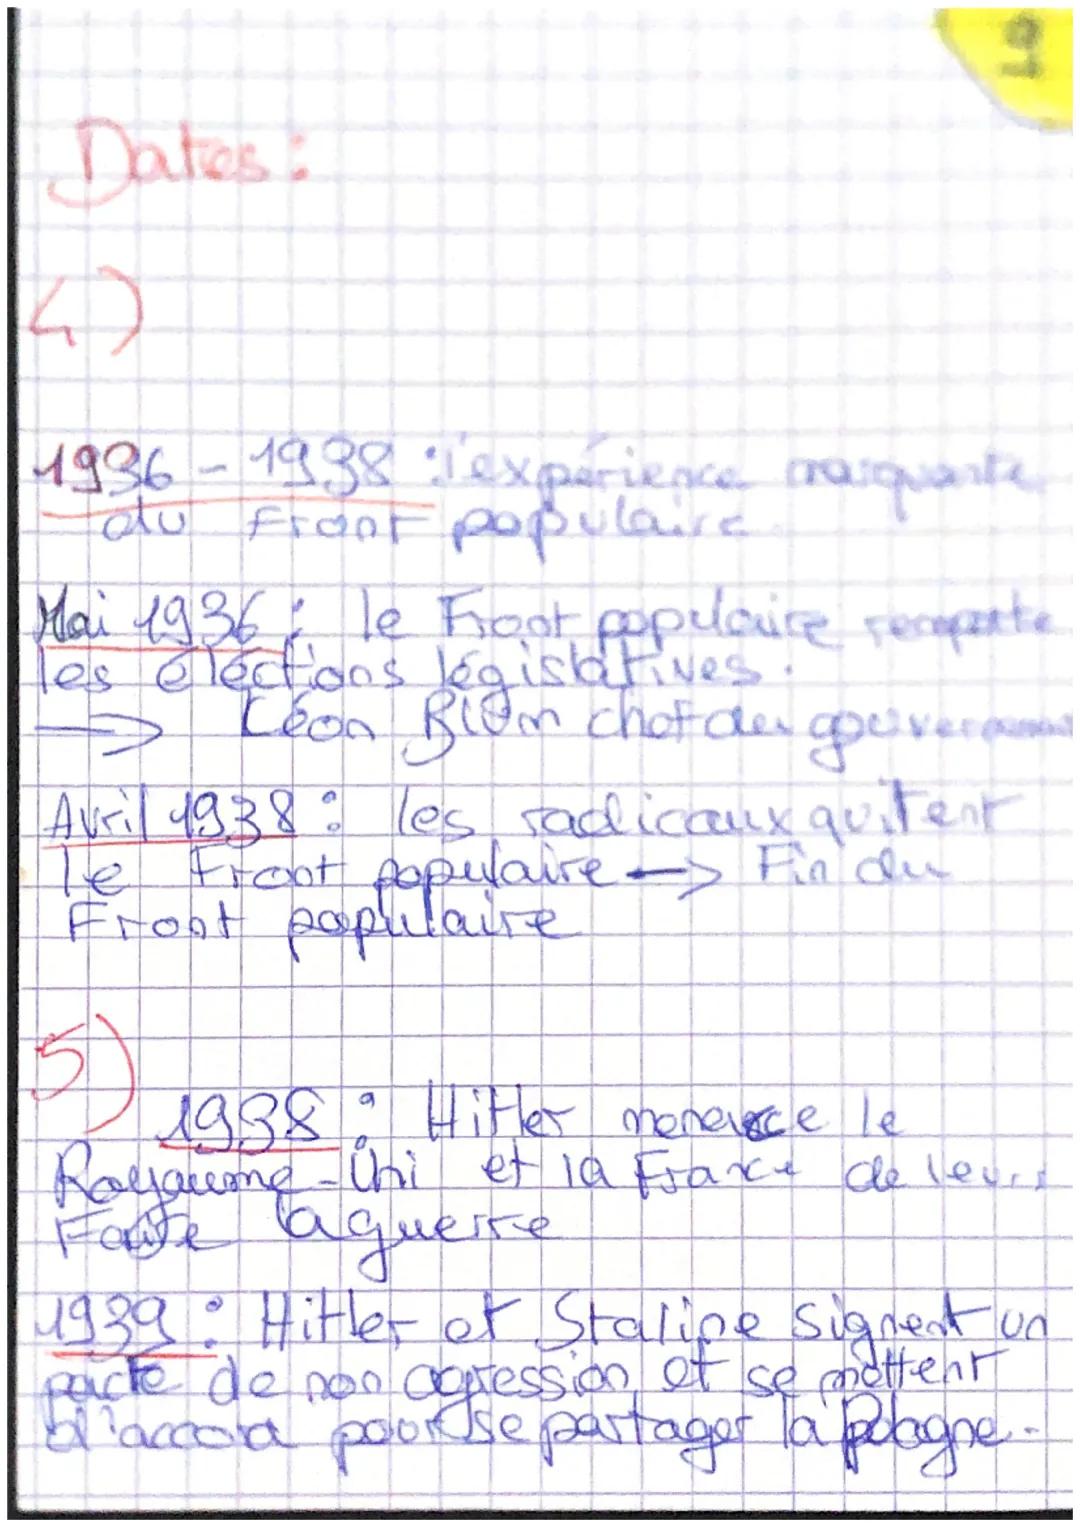 Dates :
4)
1936 - 1938 : l'expérience marquante
du Front populaire
Mai 1936 : le Front populaire remporte
les élections législatives.
→ Léon Blum chef du
Avril 1938 : les radicaux quitent
le Front populaire → Fin du
Front populaire
5)
1938 : Hitler menace le
Royaume-Uni et la France de leurs
Faire la guerre
1939 : Hitler et Staline signent un
pacte de non agression et se mettent
d'accord pour se partager la Pologne.